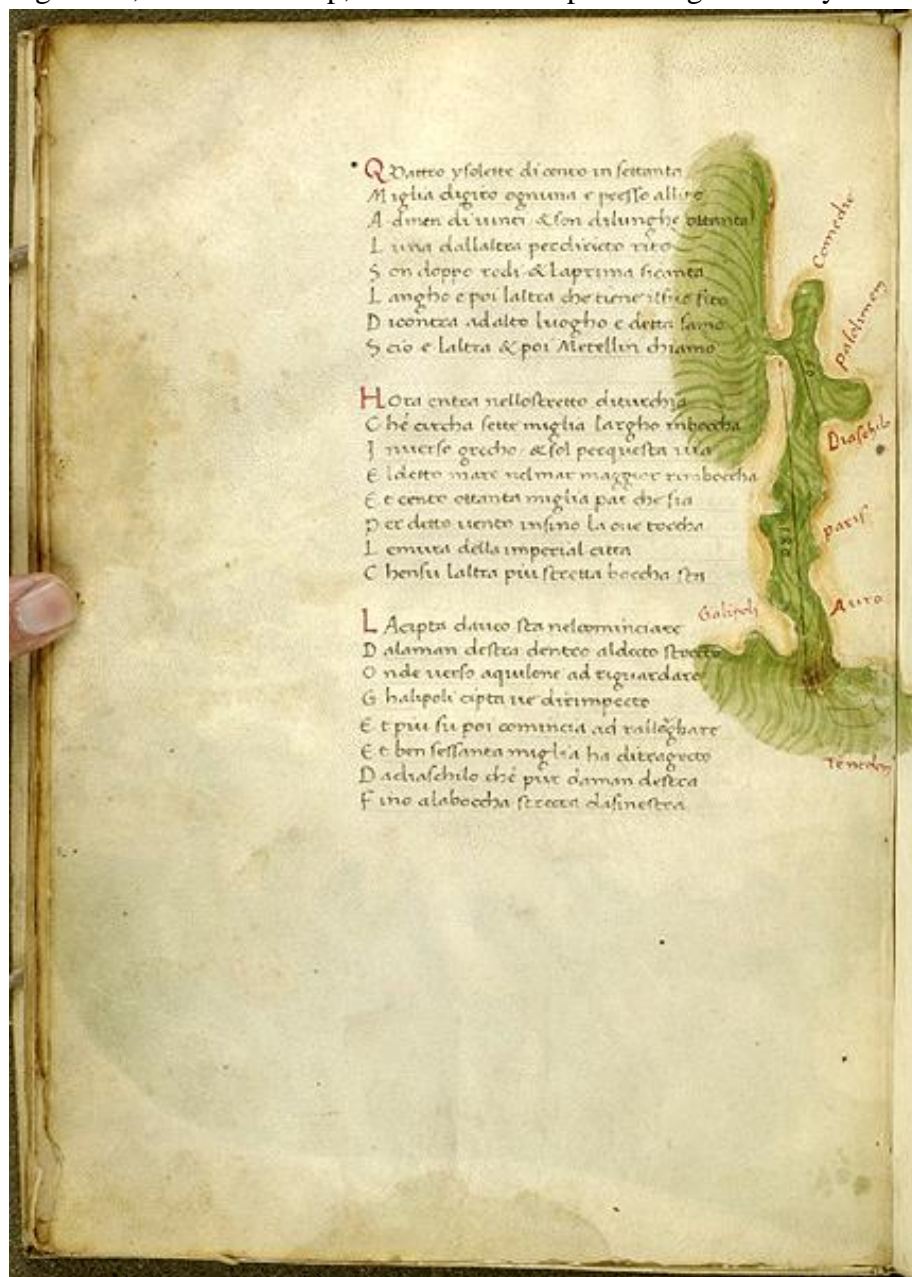 QVattro ysolette di cento in settanta
Miglia digiro ognuna e presso allito
Admen di uinti & son dilunghe ottanta
Luna dallaltra perdiricto rito
Son doppo rodi & laprima sicanta
Langho e poi laltra che tiene ilsuo sito
Dicontra adalto luogho e detta samo
Scio e laltra & poi Metellin chiamo
HOra entra nellostretto diturchia
Ché circha sette miglia largho inboccha
Inuerso grecho & sol perquesta uia
Eldetto mare nelmar maggior rimboccha
Et cento ottanta miglia par che sia
Per detto uento insino la oue toccha
Lemura della imperial citta
Chensu laltra piu stretta boccha sta
LAcipta daueo sta nelcominciare
Dalaman destra dentro aldecto strecto
Onde uerso aquilone ad riguardare
Ghalipoli cipta ue dirimpecto
Et piu su poi comincia ad rallõghare
Et ben sessanta miglia ha ditragecto
Dadiaschilo ché pur daman destra
Fino alaboccha strecta dasinestra
Comedie
Palolimem
Diaschilo
paris
Auro
Galipoli
180